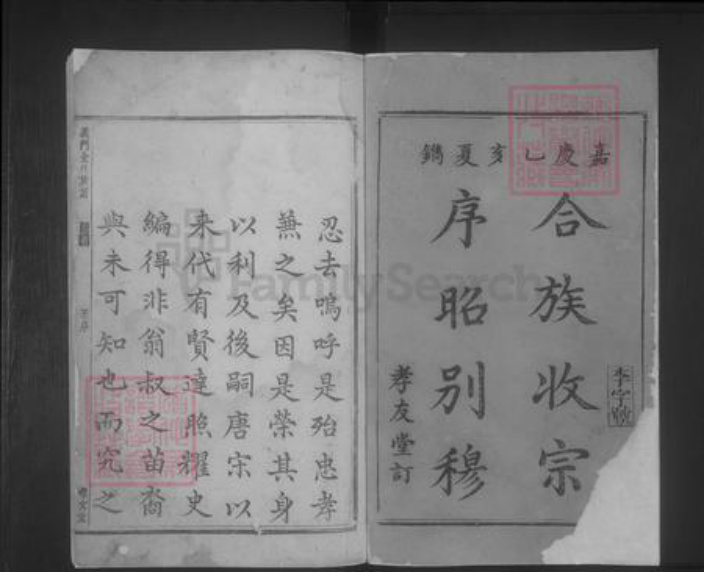 嘉慶乙亥夏鐫
李字號
合族收宗
序昭別穆
孝友堂訂
忍去嗚呼是殆忠孝
蕪之矣因是榮其身
以利及後嗣唐宋以
来代有賢達照耀史
編得非翁叔之苗裔
與未可知也而究之
孝友堂
FamilySearch